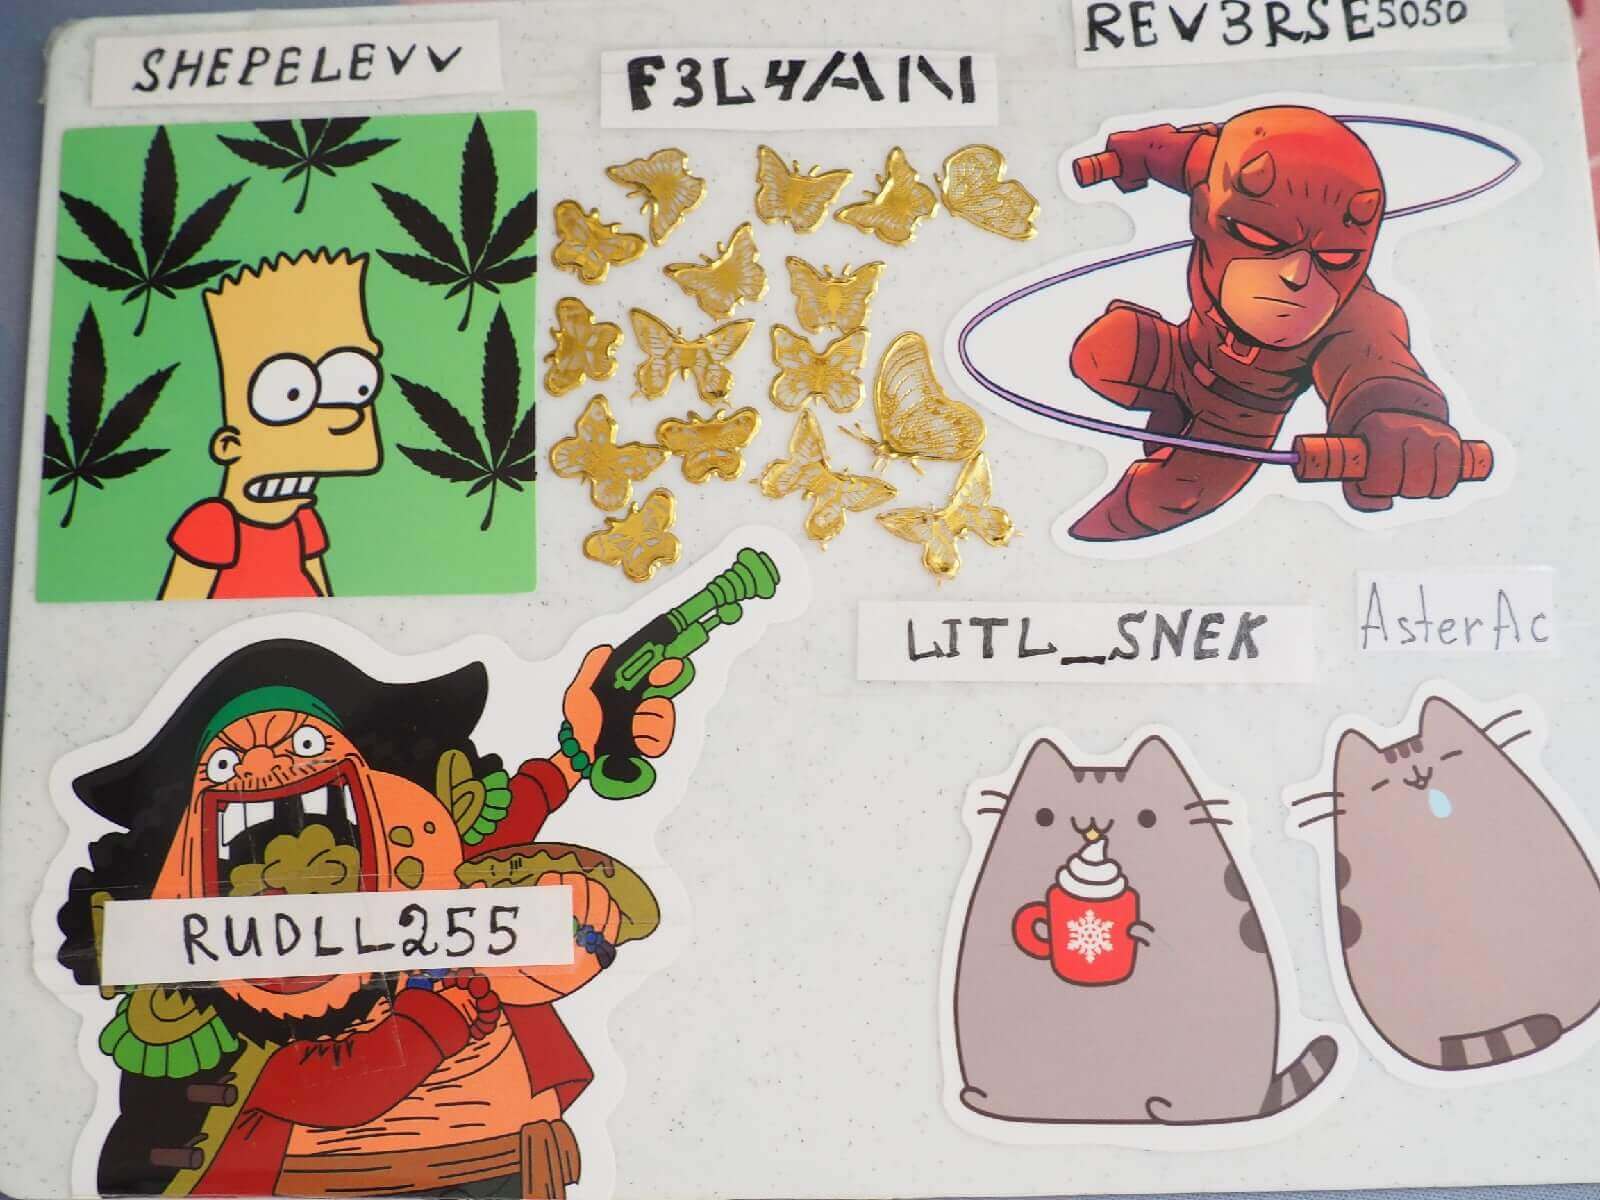 SHEPELEVV
F3L4AN
REV3RSE5050
LITL_SNEK
AsterAc
RUDLL255